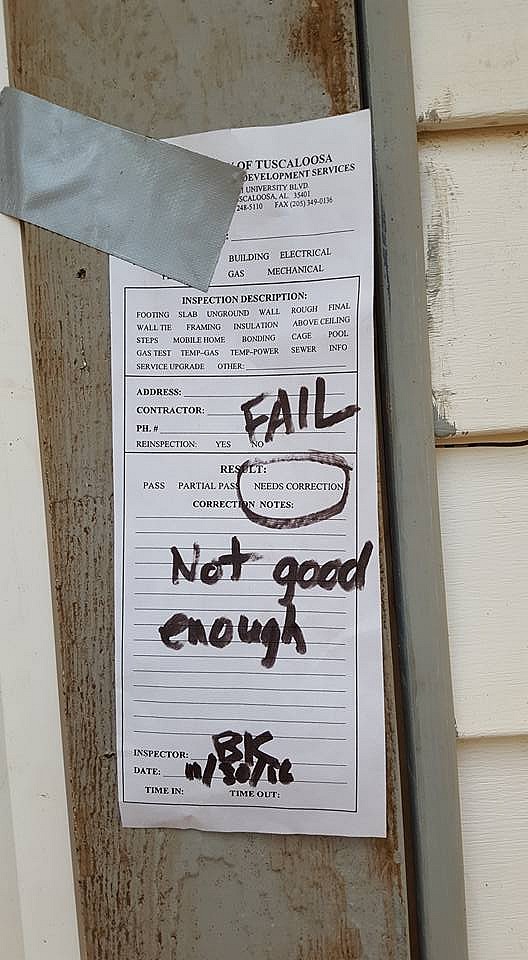 OF TUSCALOOSA
DEVELOPMENT SERVICES
UNIVERSITY BLVD.
TUSCALOOSA, AL 35401
248-5110 FAX (205) 349-0136
BUILDING ELECTRICAL
GAS MECHANICAL
INSPECTION DESCRIPTION:
FOOTING SLAB UNGROUND WALL ROUGH FINAL
WALL TIE FRAMING INSULATION ABOVE CEILING
STEPS MOBILE HOME BONDING CAGE POOL
GAS TEST TEMP-GAS TEMP-POWER SEWER INFO
SERVICE UPGRADE OTHER:
ADDRESS:
CONTRACTOR:
FAIL
PH. #
REINSPECTION: YES NO
RESULT:
PASS PARTIAL PASS NEEDS CORRECTION
CORRECTION NOTES:
Not good
enough
INSPECTOR: BK
DATE: 11/30/16
TIME IN: TIME OUT: